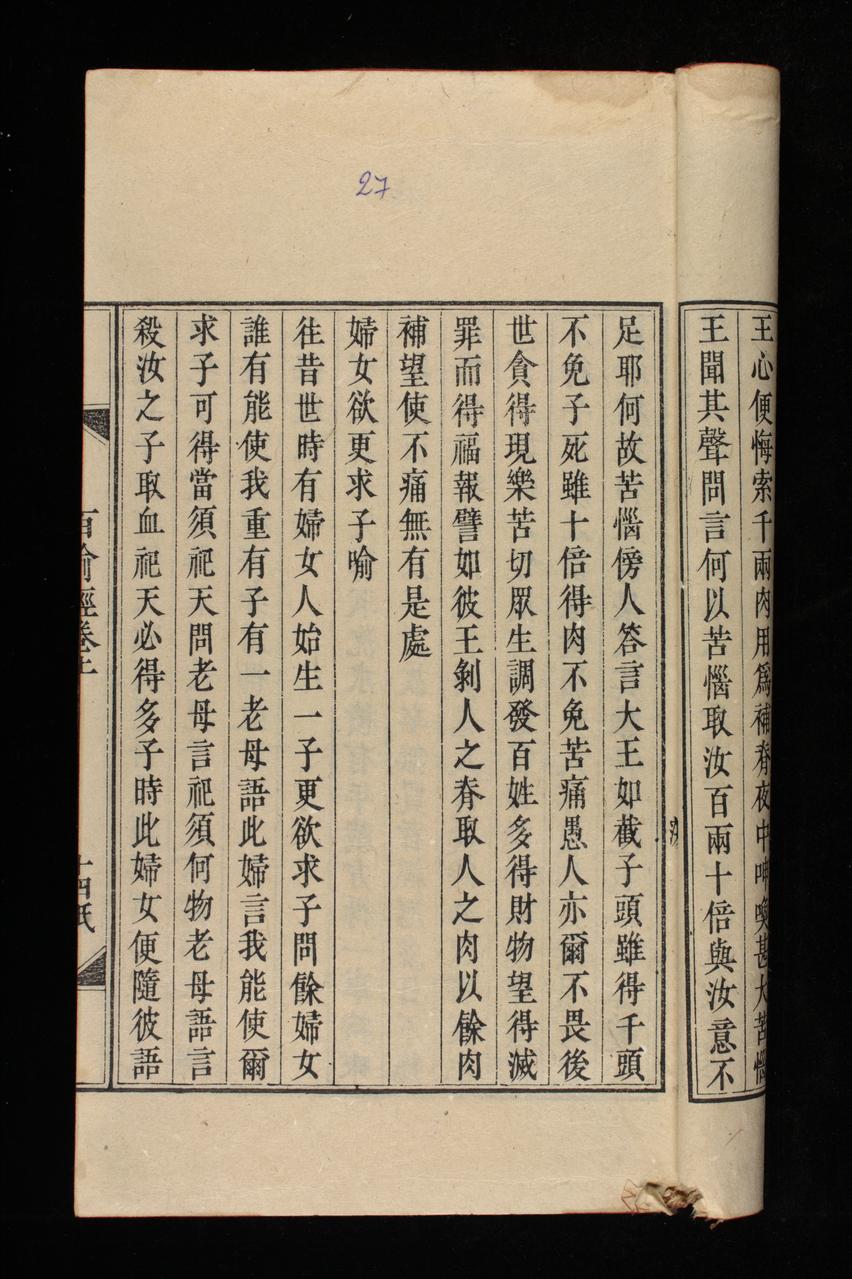 27
王心便悔索千兩肉用爲補脊夜中呻喚甚大苦惱
王聞其聲問言何以苦惱取汝百兩十倍與汝意不
足耶何故苦惱傍人答言大王如截子頭雖得千頭
不免子死雖十倍得肉不免苦痛愚人亦爾不畏後
世貪得現樂苦切眾生調發百姓多得財物望得滅
罪而得福報譬如彼王剝人之脊取人之肉以餘肉
補望使不痛無有是處
婦女欲更求子喻
往昔世時有婦女人始生一子更欲求子問餘婦女
誰有能使我重有子有一老母語此婦言我能使爾
求子可得當須祀天問老母言祀須何物老母語言
殺汝之子取血祀天必得多子時此婦女便隨彼語
百喻經卷上
十四